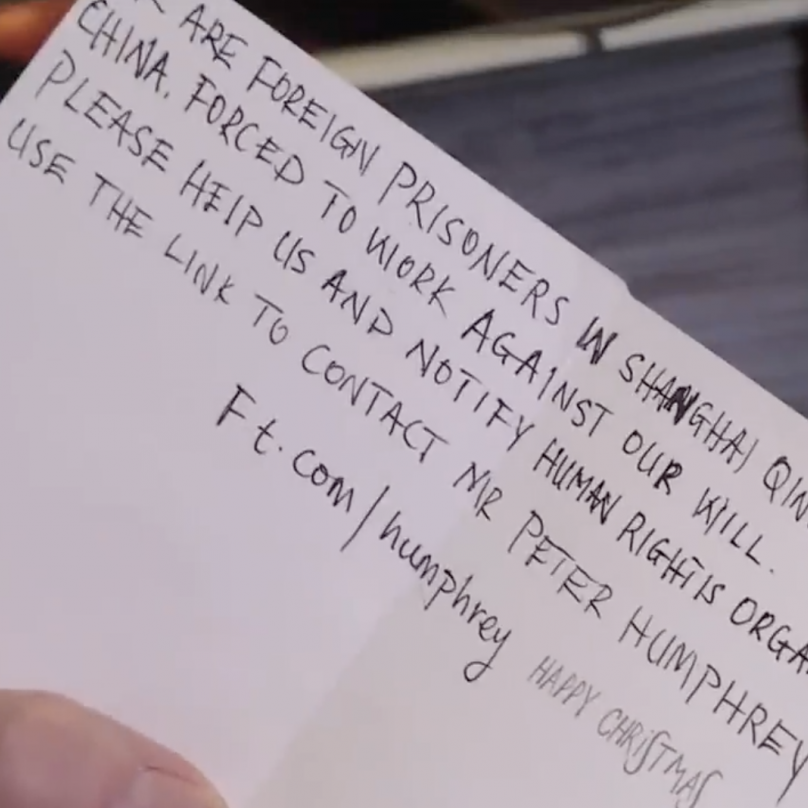 ARE FOREIGN PRISONERS IN SHANGHAI QIN
CHINA. FORCED TO WORK AGAINST OUR WILL.
PLEASE HELP US AND NOTIFY HUMAN RIGHTS ORGA
USE THE LINK TO CONTACT MR PETER HUMPHREY
Ft.com/humphrey
HAPPY CHRISTMAS